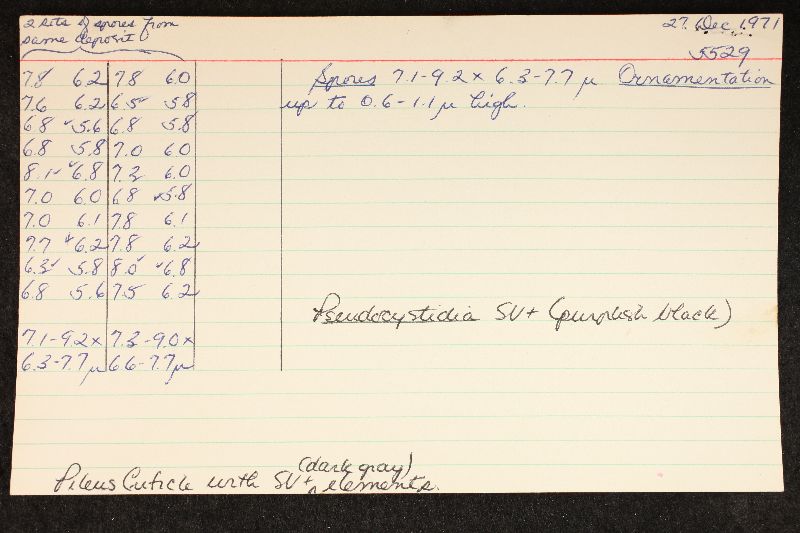 2 lots of spores from
same deposit
27 Dec 1971
5529
7.8 6.2 7.8 6.0
7.6 6.2 6.5 5.8
6.8 5.6 6.8 5.8
6.8 5.8 7.0 6.0
8.1 6.8 7.3 6.0
7.0 6.0 6.8 5.8
7.0 6.1 7.8 6.1
7.7 6.2 7.8 6.2
6.3 5.8 8.0 6.8
6.8 5.6 7.5 6.2
7.1-9.2 x 7.3-9.0 x
6.3-7.7 µ 6.6-7.7 µ
Spores 7.1-9.2 x 6.3-7.7 µ Ornamentation
up to 0.6-1.1 µ high.
Pseudocystidia SV+ (purplish black)
(dark gray)
Pileus Cuticle with SV+ elements.